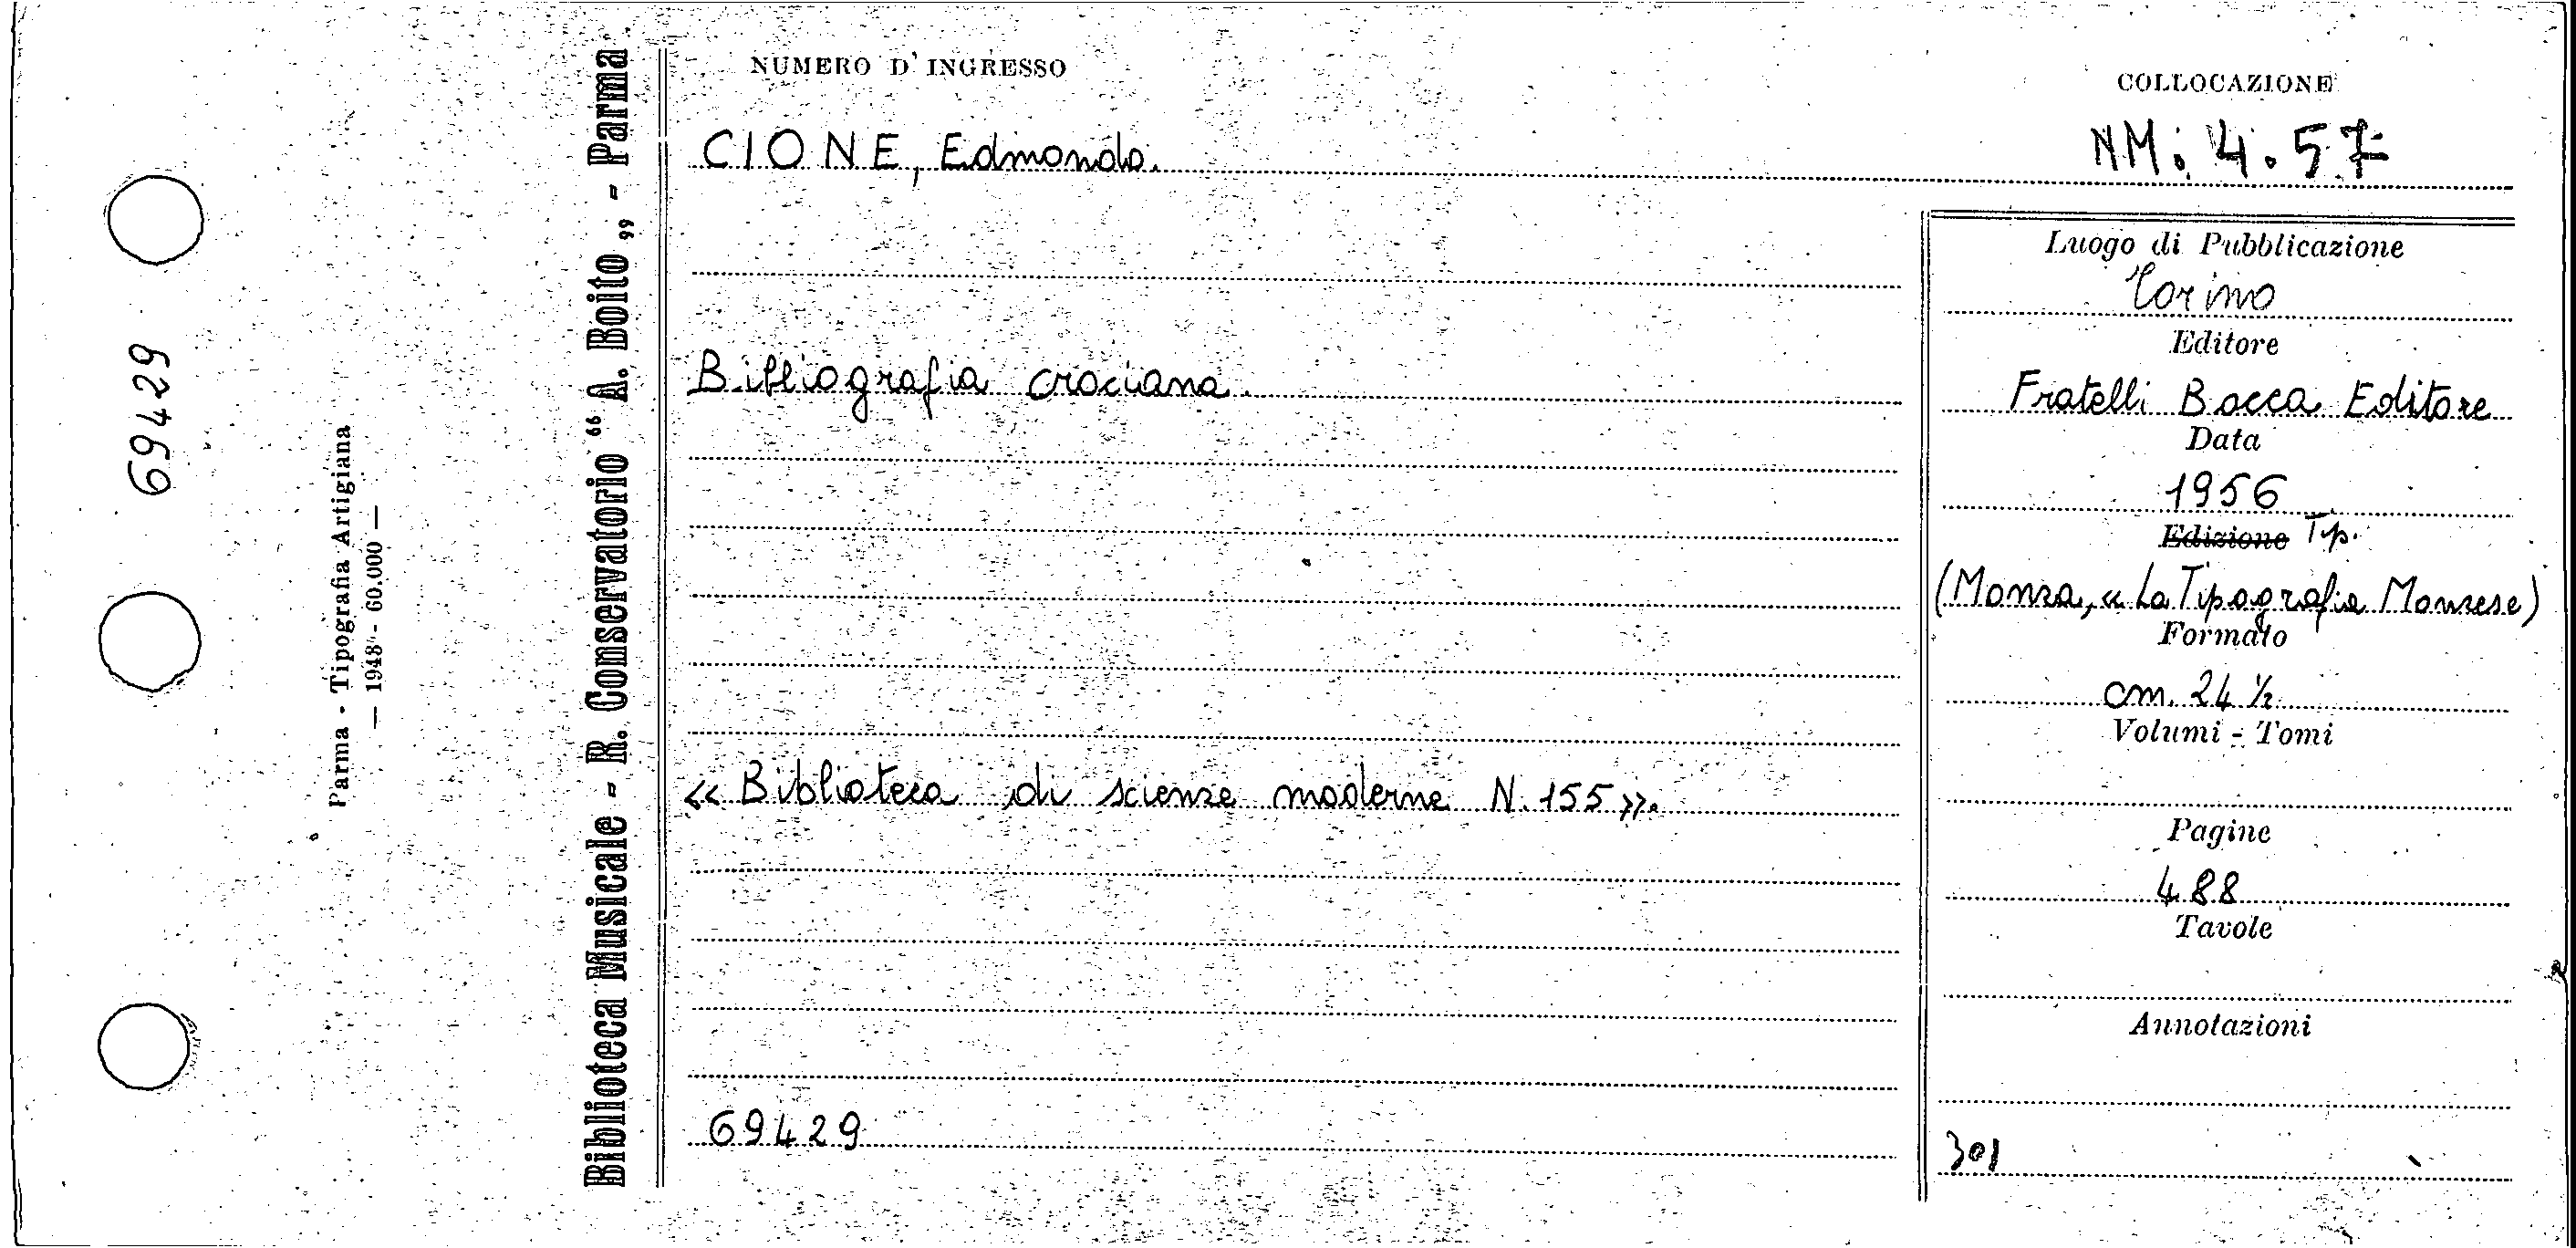 69429
Parma - Tipografia Artigiana
— 1948 - 60.000 —
Biblioteca Musicale - R. Conservatorio “ A. Boito „ - Parma
NUMERO D' INGRESSO
COLLOCAZIONE
CIONE, Edmondo.
NM. 4.57
Luogo di Pubblicazione
Torino
Editore
Bibliografia crociana.
Fratelli Bocca Editore
Data
1956
Edizione Tip.
(Monza, « La Tipografia Monzese)
Formato
cm. 24 ½
Volumi - Tomi
« Biblioteca di scienze moderne N. 155 ».
Pagine
488
Tavole
Annotazioni
69429
301